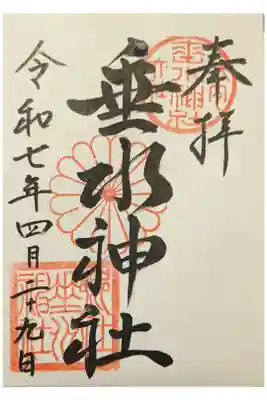 奉拝
垂水神社
令和七年四月二十九日